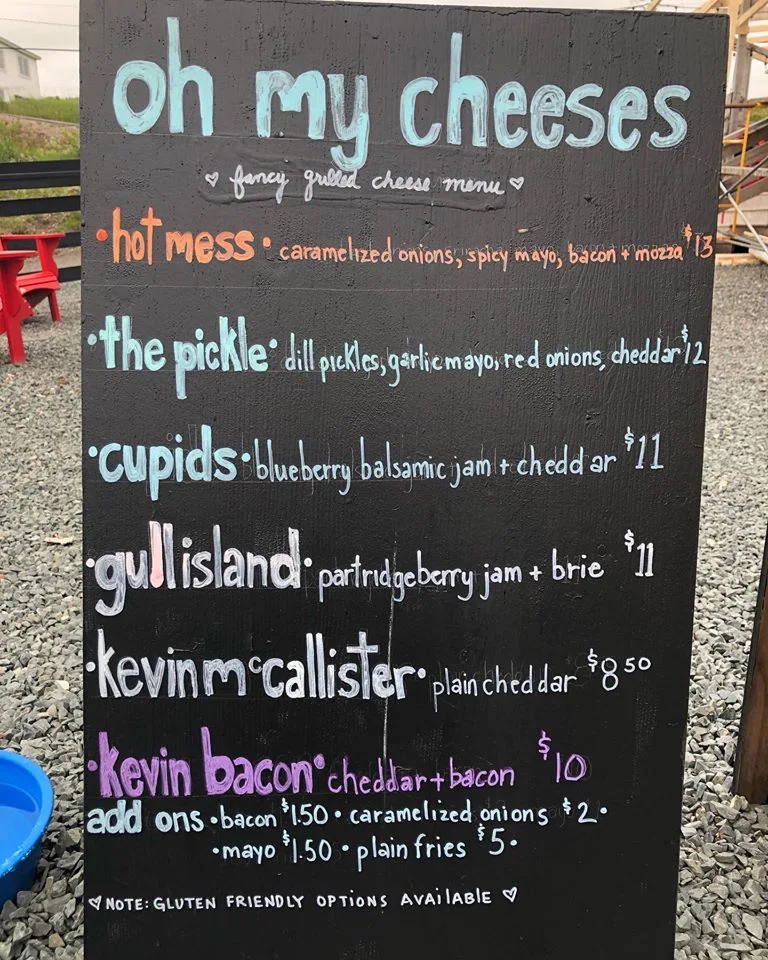 oh my cheeses
♡ fancy grilled cheese menu ♡
• hot mess • caramelized onions, spicy mayo, bacon + mozza $13
• the pickle • dill pickles, garlic mayo, red onions, cheddar $12
• cupids • blueberry balsamic jam + cheddar $11
• gull island • partridgeberry jam + brie $11
• kevin mccallister • plain cheddar $8 50
• kevin bacon • cheddar + bacon $10
add ons • bacon $1.50 • caramelized onions $2 •
• mayo $1.50 • plain fries $5 •
♡ NOTE: GLUTEN FRIENDLY OPTIONS AVAILABLE ♡